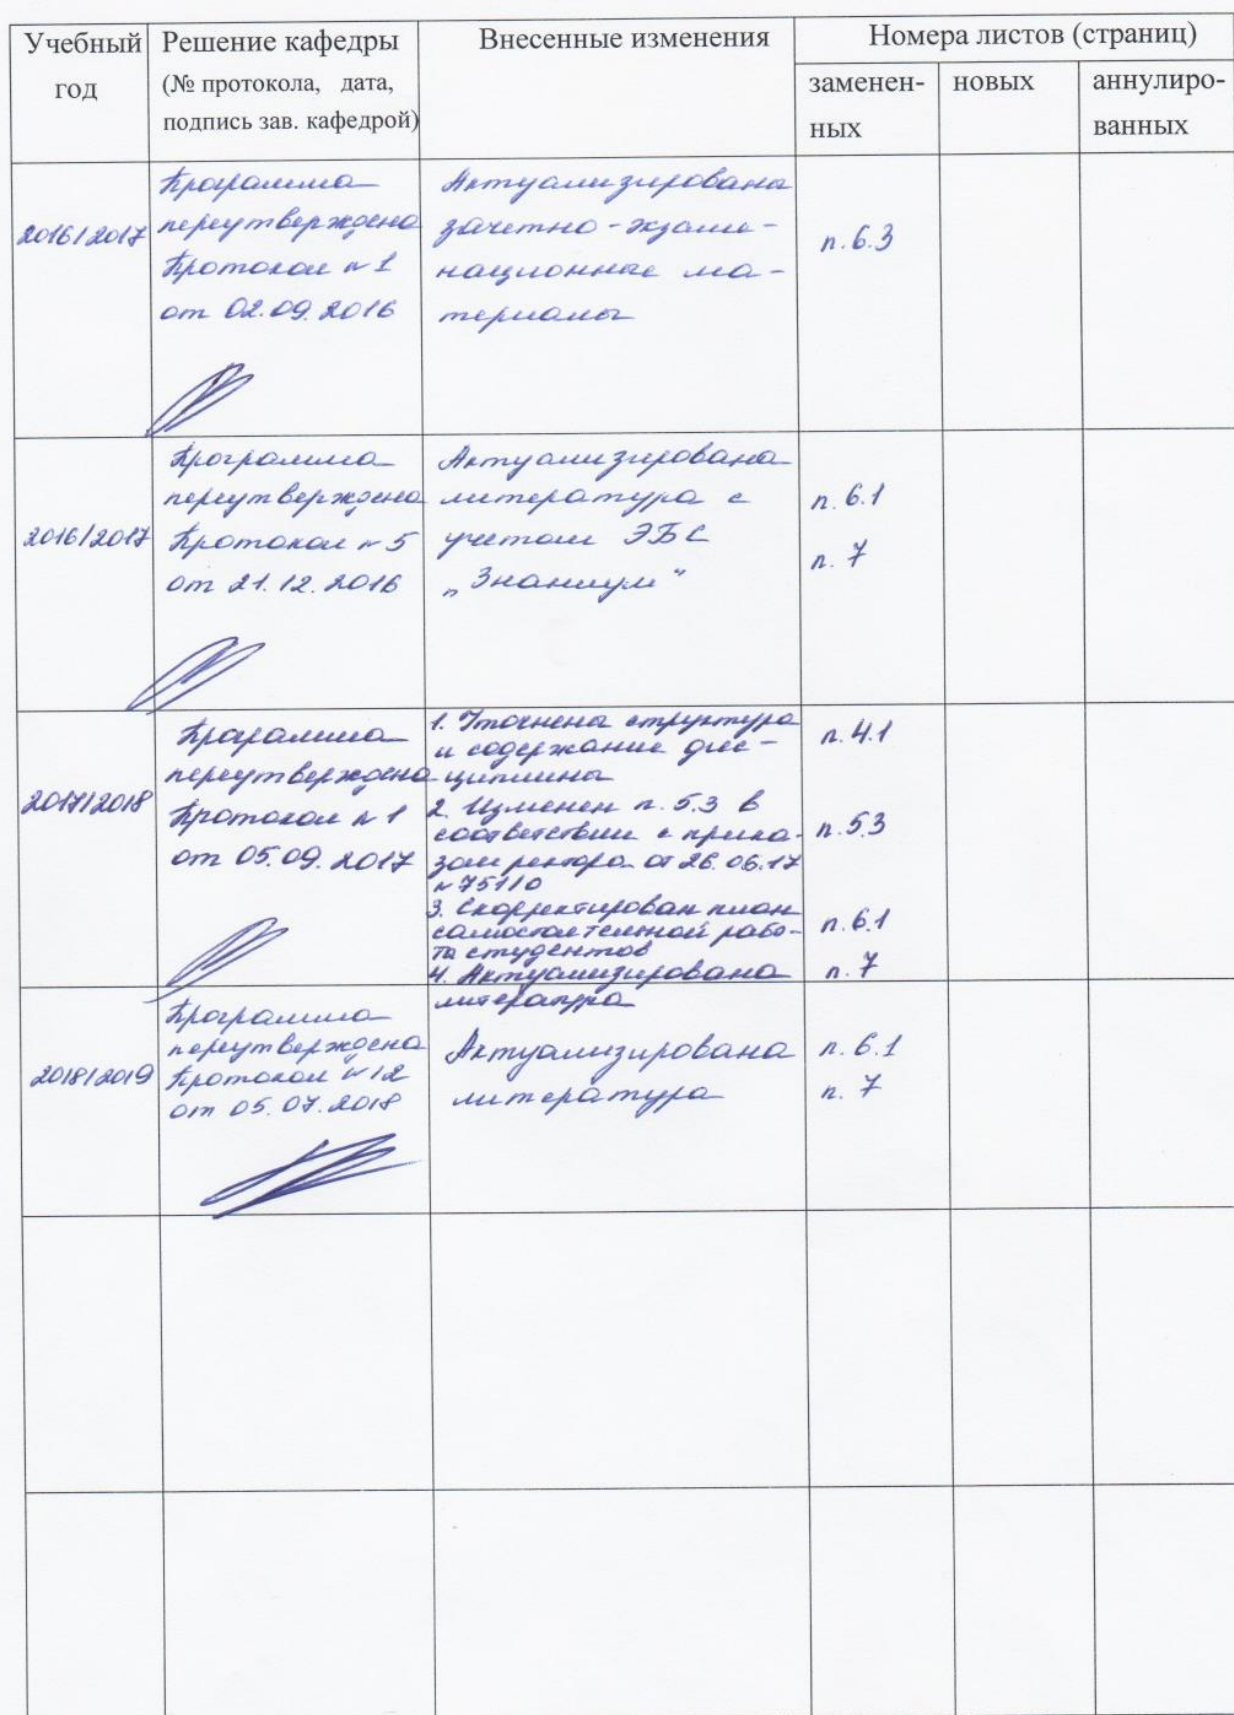 Учебный год
Решение кафедры
(№ протокола, дата,
подпись зав. кафедрой)
Внесенные изменения
Номера листов (страниц)
заменен-
ных
новых
аннулиро-
ванных
2016/2017
Программа
переутверждена
Протокол №1
от 02.09.2016
Актуализирована
зачетно-экзаме-
национные ма-
териалы
п. 6.3
2016/2017
Программа
переутверждена
Протокол №5
от 21.12.2016
Актуализирована
литература с
учетом ЭБС
„Знаниум"
п. 6.1
п. 7
2017/2018
Программа
переутверждена
Протокол №1
от 05.09.2017
1. Уточнена структура
и содержание дис-
циплины
2. Изменен п. 5.3 в
соответствии с прика-
зом ректора от 26.06.17
№751/0
3. Скорректирован план
самостоятельной рабо-
ты студентов
4. Актуализирована
литература
п. 4.1
п. 5.3
п. 6.1
п. 7
2018/2019
Программа
переутверждена
Протокол №12
от 05.07.2018
Актуализирована
литература
п. 6.1
п. 7